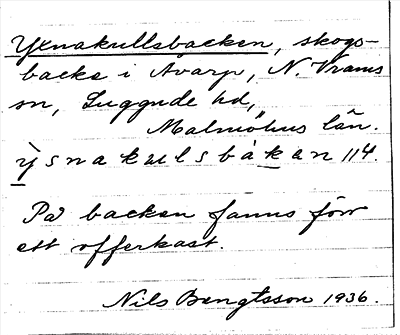 Yxnakullsbacken, skogs-
backe i Åvarp, N. Vrams
sn, Luggude hd,
Malmöhus län.
ỳsnakulsbàkan 114.
På backen fanns förr
ett offerkast.
Nils Bengtsson 1936.